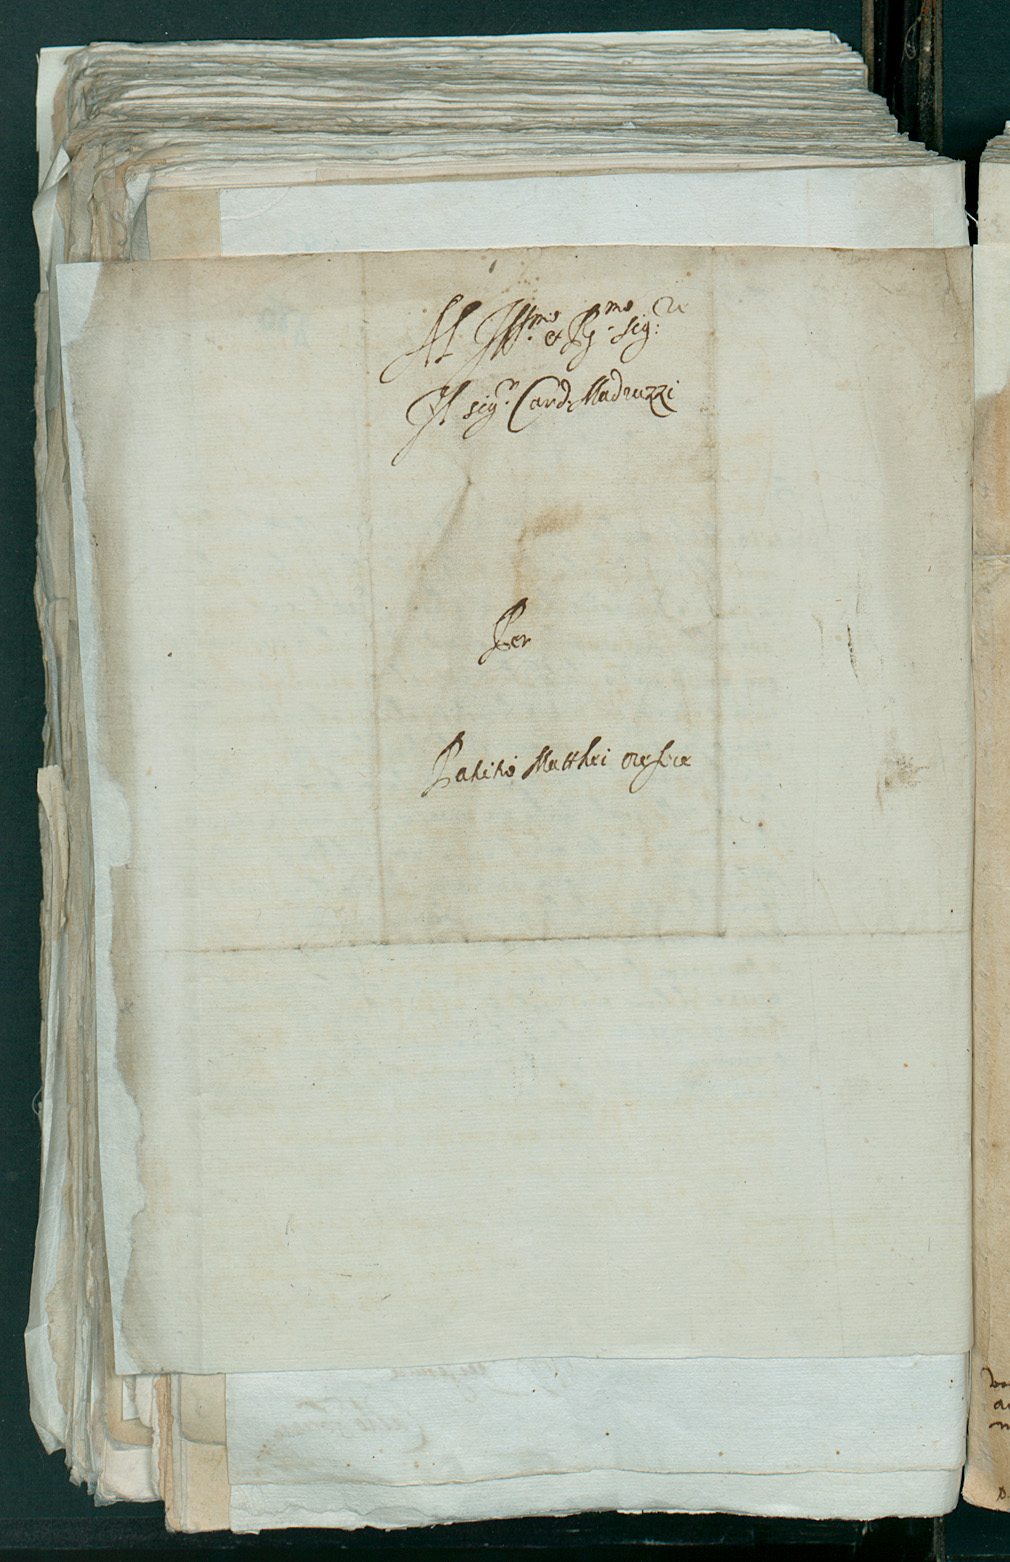 Al Ill.mo et R.mo Sig.re
Il sig.r Card. Madruzzi
Per
Matthei orefice